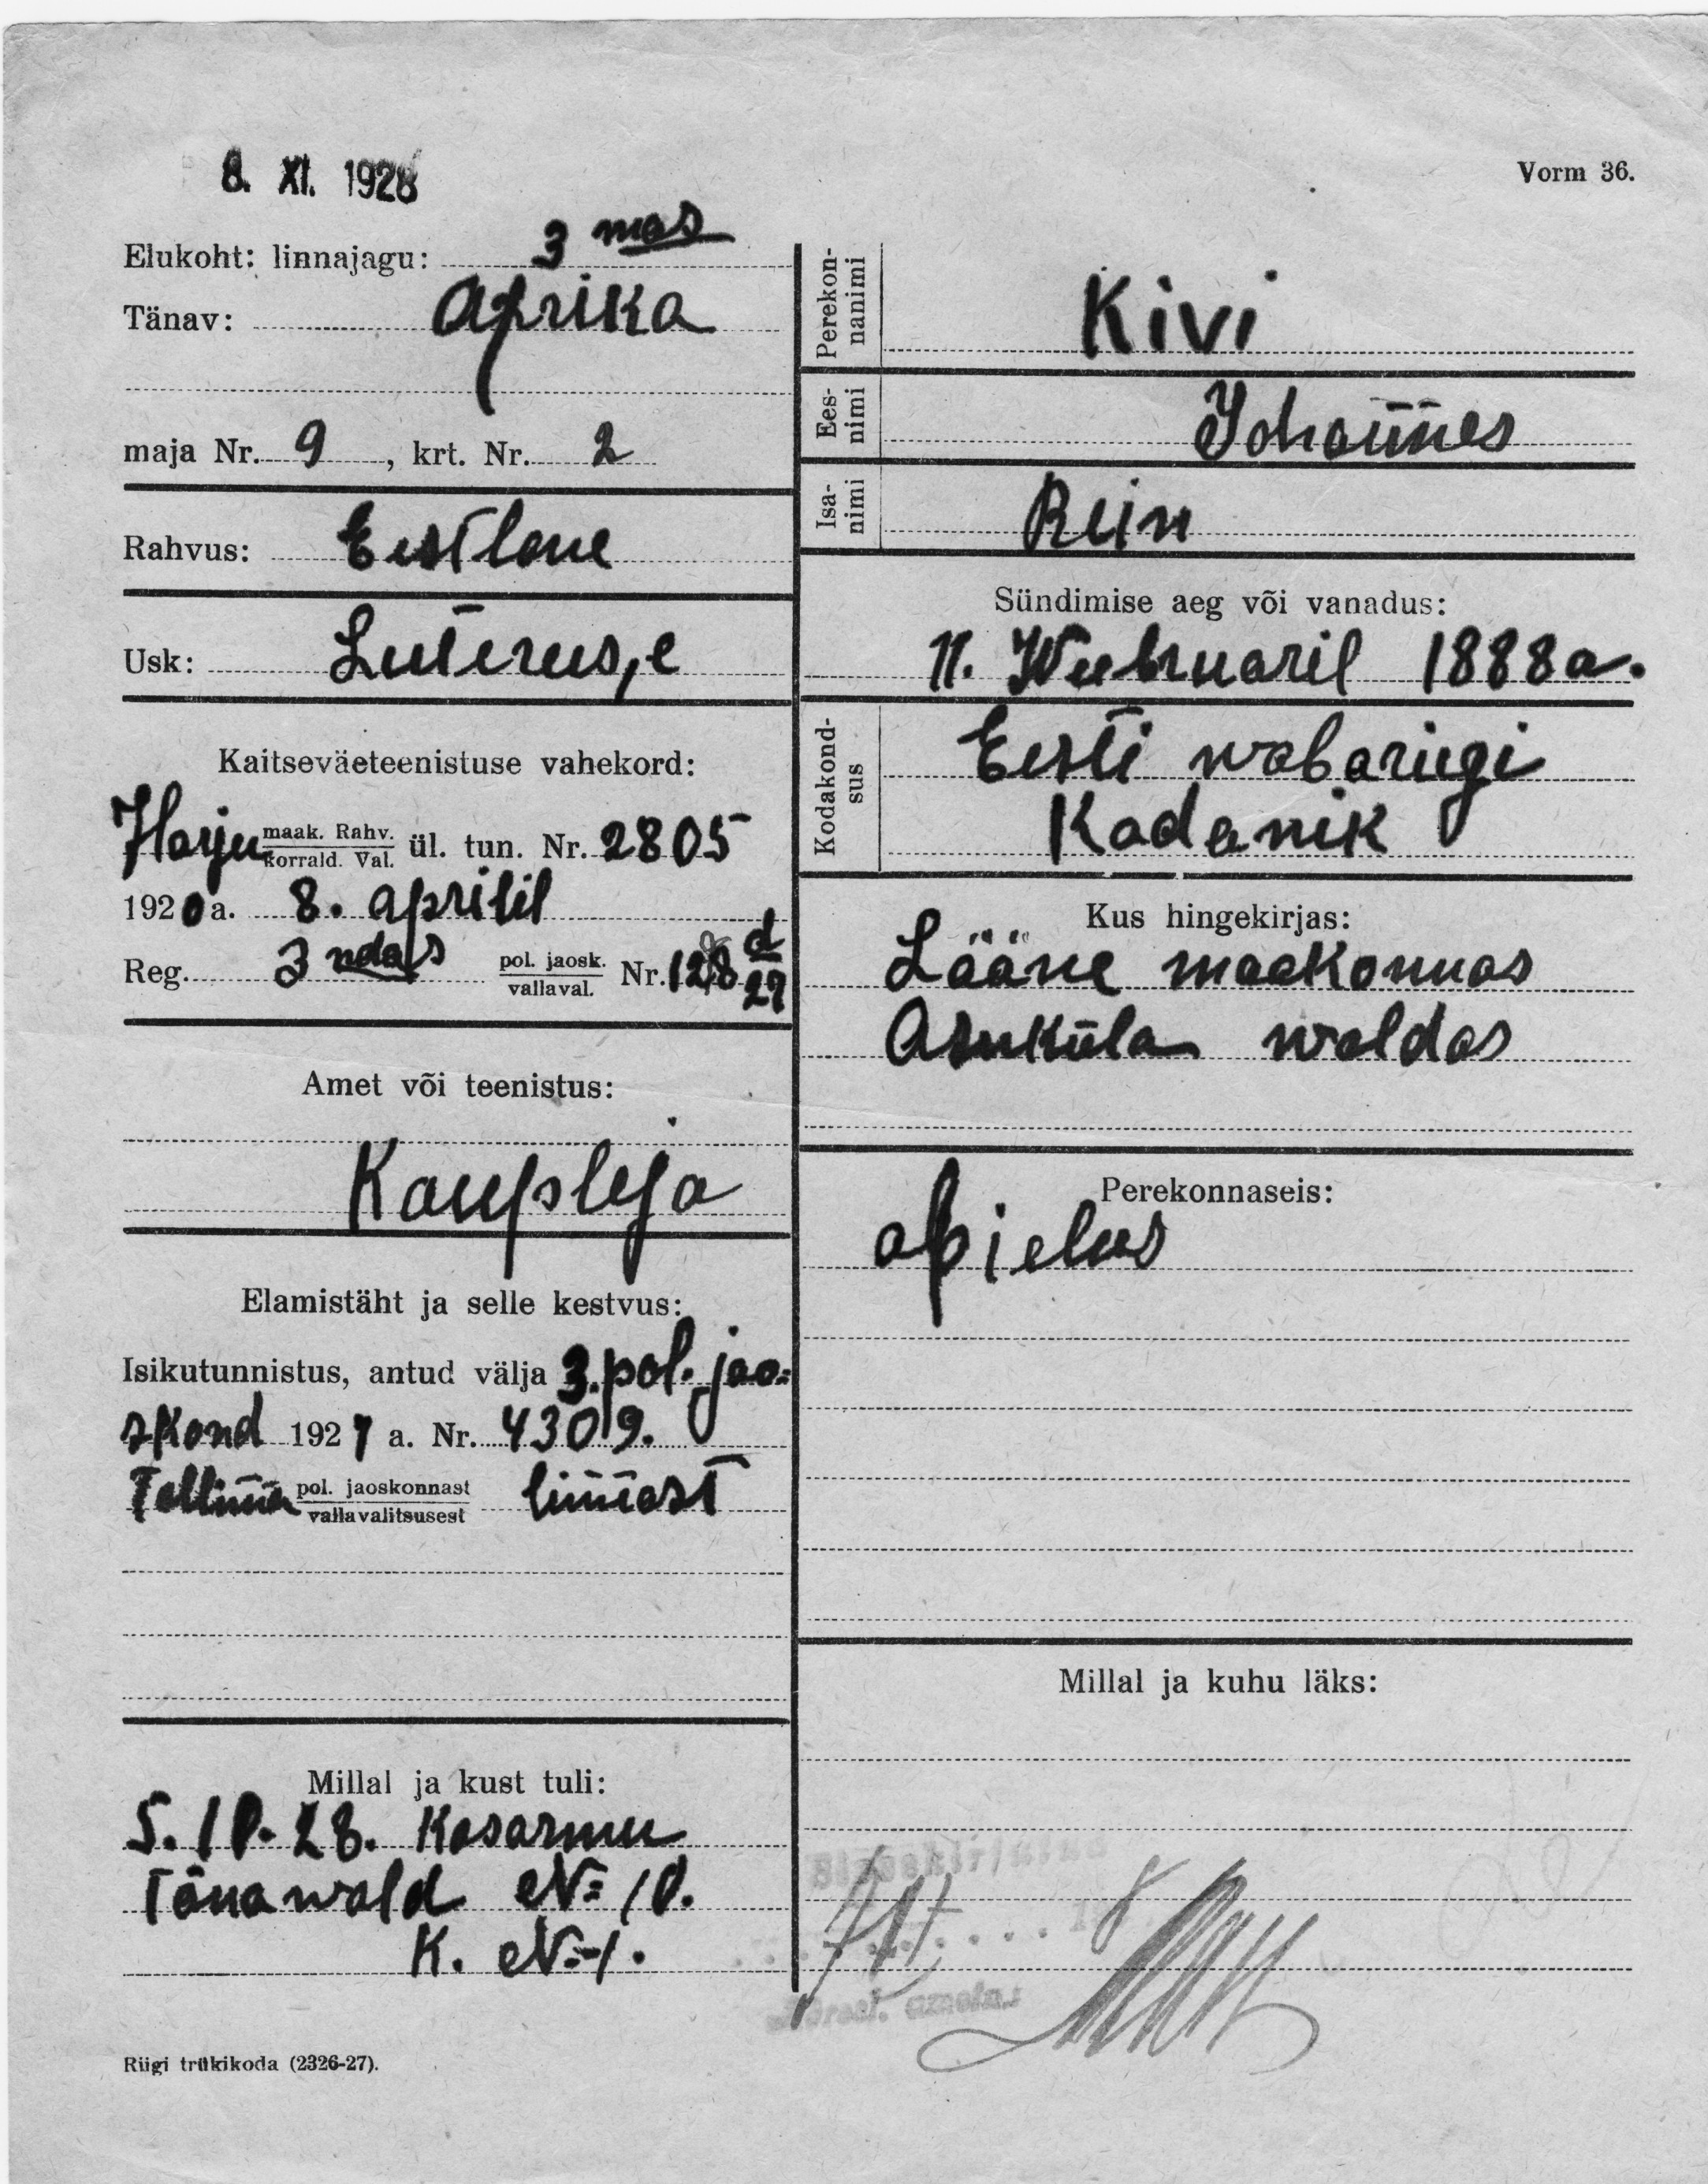 8. XI. 1928
Vorm 36.
Elukoht: linnajagu: 3 mas
Tänav: Aprika
maja Nr. 9, krt. Nr. 2
Rahvus: Eestlane
Usk: Luterus,e
Kaitseväeteenistuse vahekord:
Harju maak. Rahv. korrald. Val. ül. tun. Nr. 2805
1920 a. 8. aprilil
Reg. 3 ndas pol. jaosk. vallaval. Nr. 128 d 27
Amet või teenistus:
Kaupleja
Elamistäht ja selle kestvus:
Isikutunnistus, antud välja 3. pol. jao=
skond 1927 a. Nr. 4309.
Tallinna pol. jaoskonnast vallavalitsusest linnast
Millal ja kust tuli:
5. 10. 28. Kasarmu
Tänawald № 10.
K. № 1.
Riigi trükikoda (2326-27).
Perekon-
nanimi
Kivi
Ees-
nimi
Johannes
Isa-
nimi
Rein
Sündimise aeg või vanadus:
11. Weebruaril 1888 a.
Kodakond-
sus
Eesti wabariigi
Kodanik
Kus hingekirjas:
Lääne maakonnas
Asuküla waldas
Perekonnaseis:
abielus
Millal ja kuhu läks:
Sissekirjutud